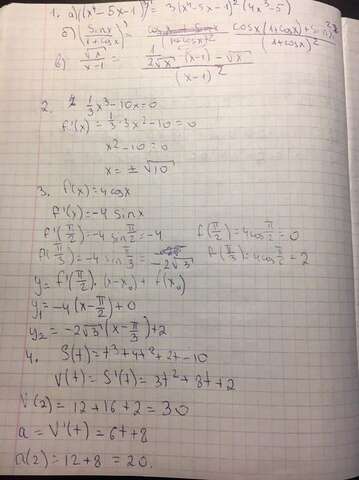 1. а) ((x⁴-5x-1)³)' = 3(x⁴-5x-1)² (4x³-5)
б) (sinx/(1+cosx))' = (cosx(1+cosx)+sin²x)/(1+cosx)²
в) √x/(x-1) = (1/(2√x) (x-1) - √x)/(x-1)²
2. 1/3 x³-10x=0
f'(x) = 1/3·3x²-10=0
x²-10=0
x = ± √10
3. f(x)=4cosx
f'(x)=-4sinx
f'(π/2)=-4sin π/2=-4 f(π/2)=4cos π/2=0
f'(π/3)=-4sin π/3=-2√3 f(π/3)=4cos π/3=2
y= f'(π/2)·(x-x₀)+ f(x₀)
y₁=-4(x-π/2)+0
y₂=-2√3(x-π/3)+2
4. S(t)=t³+4t²+2t-10
V(t)=S'(t)=3t²+8t+2
V(2)=12+16+2=30
a=V'(t)=6t+8
a(2)=12+8=20.